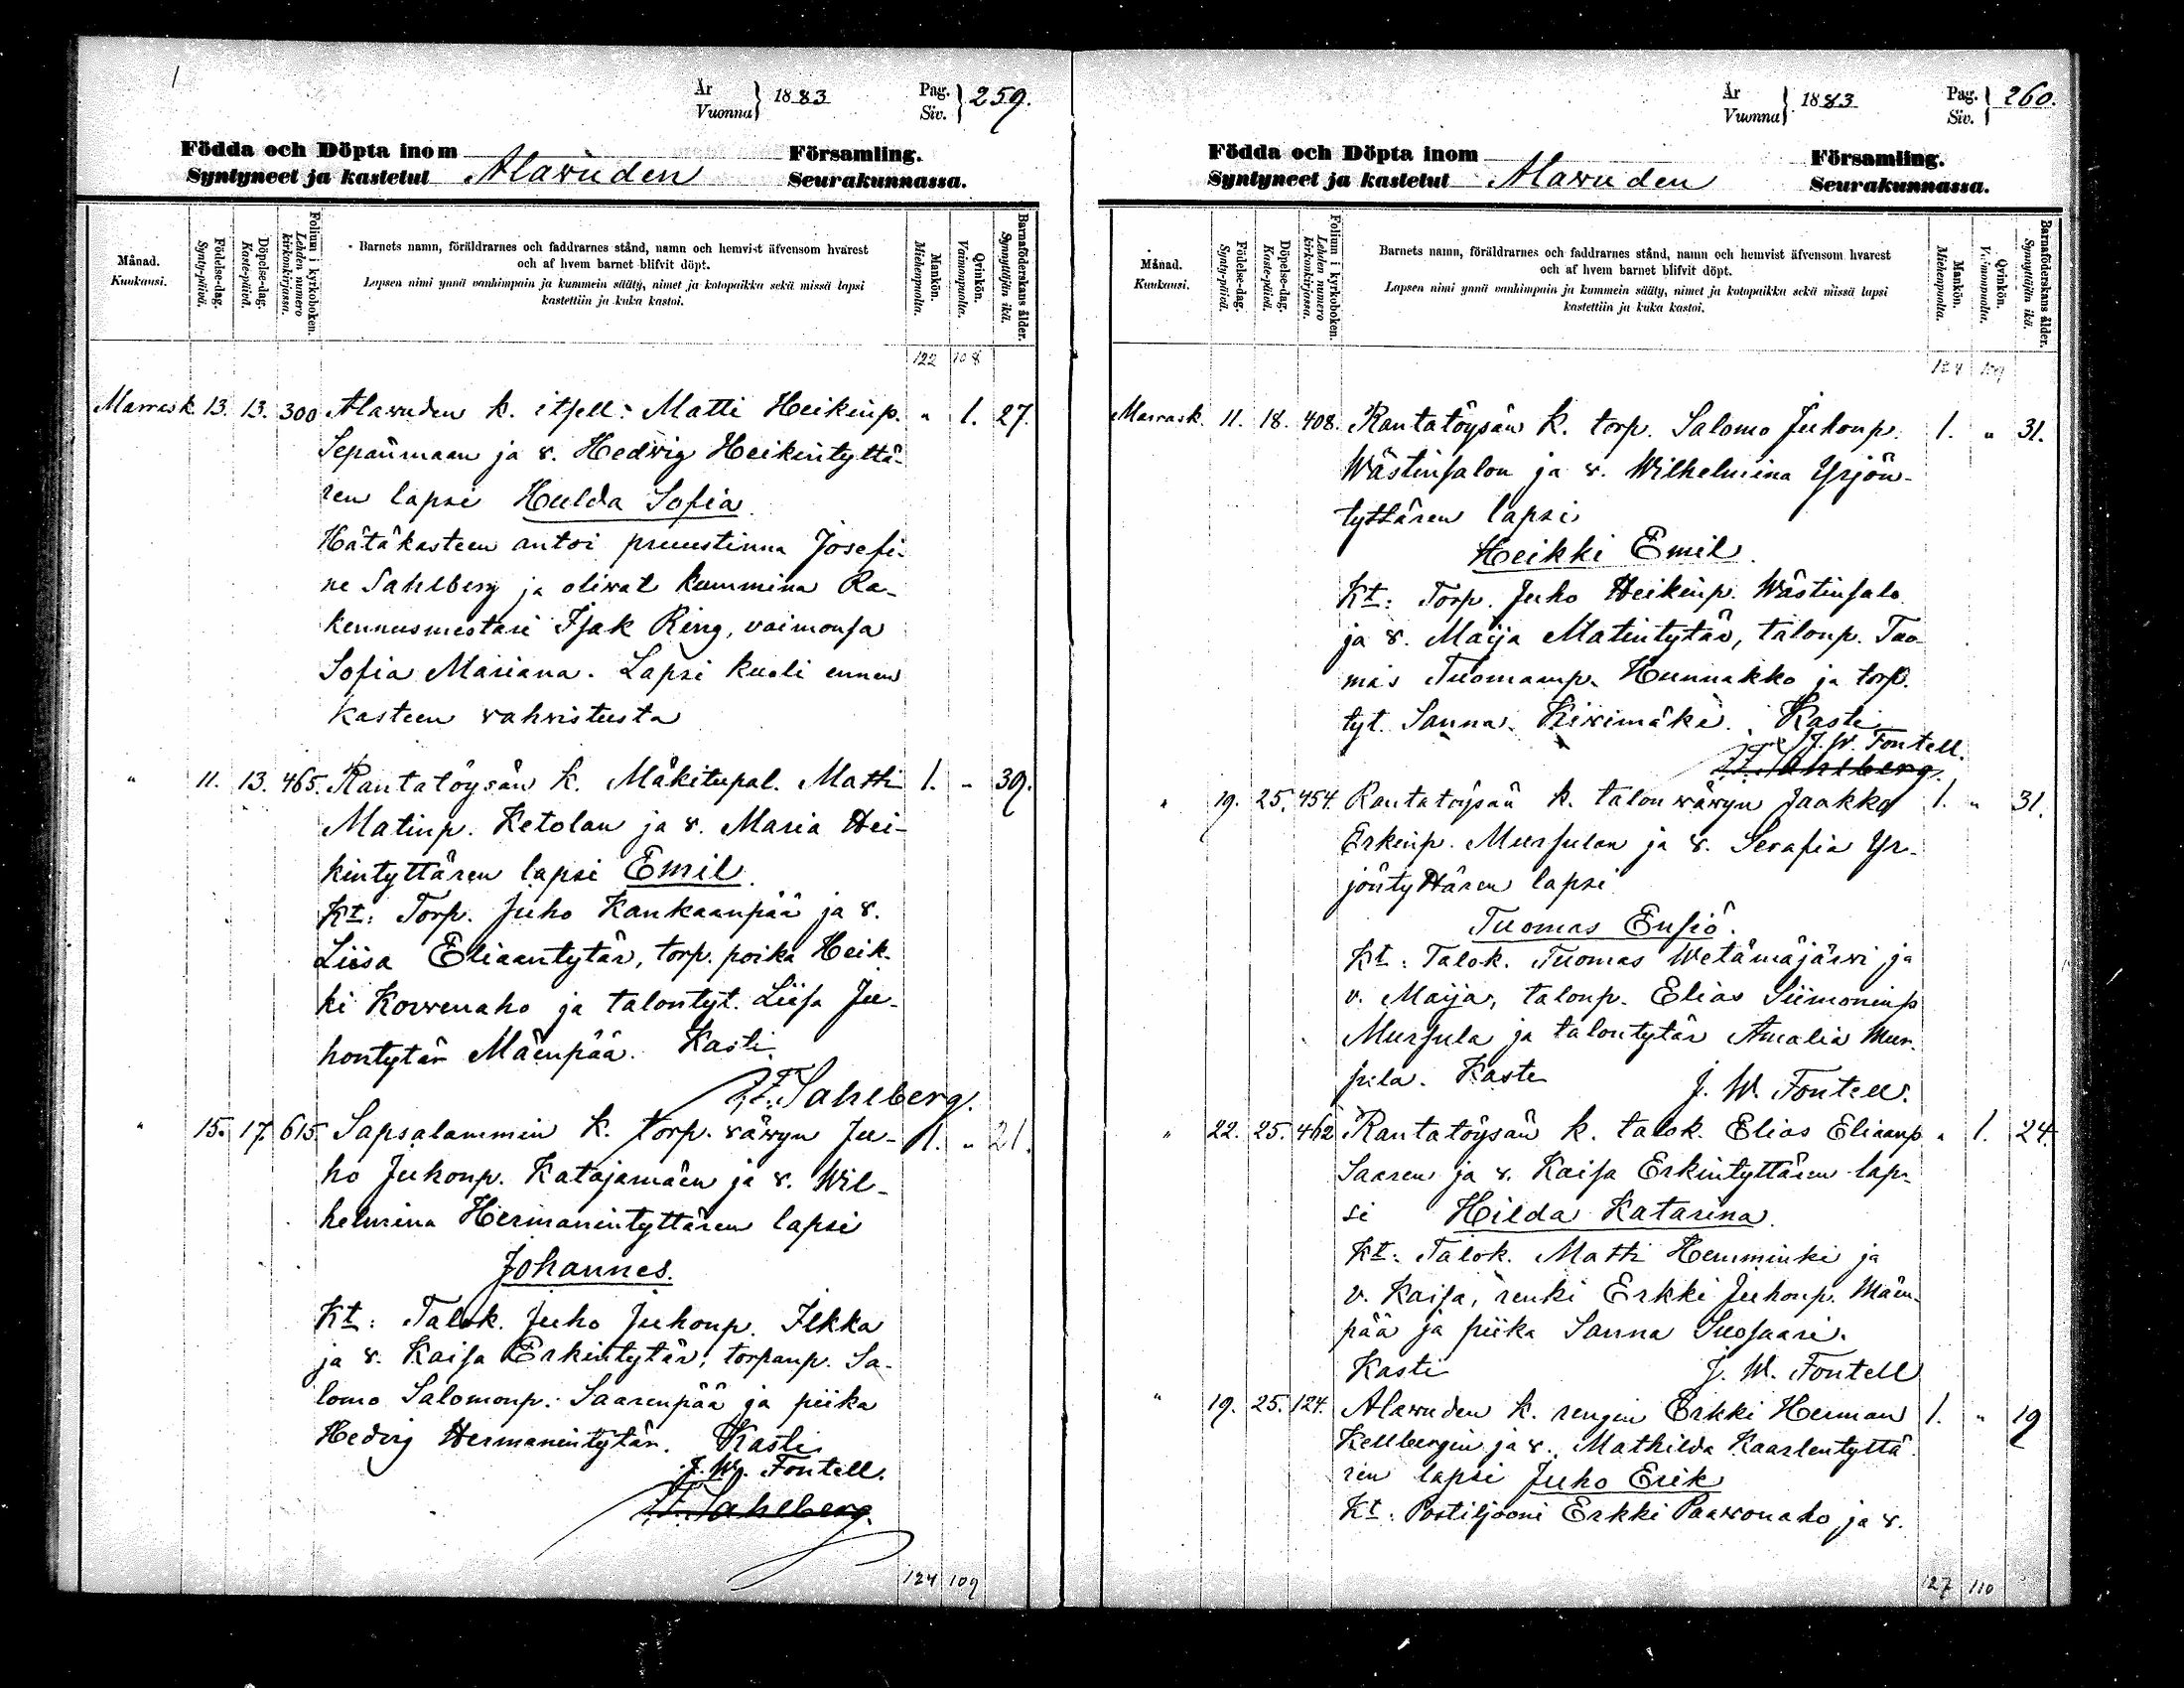 År
Vuonna } 1883
Pag.
Siv. } 259.
Födda och Döpta inom Församling.
Syntyneet ja kastetut Alavuden Seurakunnassa.
Månad.
Kuukausi.
Födelse-dag.
Synty-päivä.
Döpelse-dag.
Kaste-päivä.
Folium i kyrkoboken.
Lehden numero kirkonkirjassa.
Barnets namn, föräldrarnes och faddrarnes stånd, namn och hemvist äfvensom hvarest
och af hvem barnet blifvit döpt.
Lapsen nimi ynnä vanhimpain ja kummein sääty, nimet ja kotopaikka sekä missä lapsi
kastettiin ja kuka kastoi.
Mankön.
Miehenpuolia.
Qvinkön.
Vaimonpuolia.
Barnaföderskans ålder.
Synnyttäjän ikä.
122 108
Marrask. 13. 13. 300 Alavuden k. itsell. Matti Heikinp. " 1. 27.
Sepänmaan ja v. Hedvig Heikintyttä-
ren lapsi Hulda Sofia.
Hätäkasteen antoi pruustinna Josefi-
ne Sahlberg ja olivat kummina Ra-
kennusmestari Isak Ring, vaimonsa
Sofia Mariana. Lapsi kuoli ennen
kasteen vahvistusta
" 11. 13. 465. Rantatöysän k. Mäkitupal. Matti 1. " 39.
Matinp. Ketolan ja v. Maria Hei-
kintyttären lapsi Emil.
Kt: Torp. Juho Kankaanpää ja v.
Liisa Eliaantytär, torp. poika Heik-
ki Korvenaho ja talontyt. Liisa Ju-
hontytär Mäenpää. Kasti
F. Sahlberg.
" 15. 17. 615. Sapsalammin k. torp. vävyn Ju- 1. " 21.
ho Juhonp. Katajamäen ja v. Wil-
helmina Hermanintyttären lapsi
Johannes.
Kt: Talok. Juho Juhonp. Ilkka
ja v. Kaisa Erkintytär, torpanp. Sa-
lomo Salomonp. Saarenpää ja piika
Hedvig Hermanintytär. Kasti
J. W. Fontell.
F. Sahlberg.
124 109
År
Vuonna } 1883
Pag.
Siv. } 260.
Födda och Döpta inom Församling.
Syntyneet ja kastetut Alavuden Seurakunnassa.
Månad.
Kuukausi.
Födelse-dag.
Synty-päivä.
Döpelse-dag.
Kaste-päivä.
Folium i kyrkoboken.
Lehden numero kirkonkirjassa.
Barnets namn, föräldrarnes och faddrarnes stånd, namn och hemvist äfvensom hvarest
och af hvem barnet blifvit döpt.
Lapsen nimi ynnä vanhimpain ja kummein sääty, nimet ja kotopaikka sekä missä lapsi
kastettiin ja kuka kastoi.
Mankön.
Miehenpuolia.
Qvinkön.
Vaimonpuolia.
Barnaföderskans ålder.
Synnyttäjän ikä.
124 109
Marrask. 11. 18. 408. Rantatöysän k. torp. Salomo Juhonp. 1. " 31.
Wästinsalon ja v. Wilhelmina Yrjön-
tyttären lapsi
Heikki Emil.
Kt: Torp. Juho Heikinp. Wästinsalo
ja v. Maija Matintytär, talonp. Tuo-
mas Tuomaanp. Hunnakko ja torp.
tyt. Sanna Kivimäki. Kasti
J. W. Fontell.
F. Sahlberg.
" 19. 25. 454. Rantatöysän k. talon vävyn Jaakko 1. " 31.
Erkinp. Mursulan ja v. Serafia Yr-
jöntyttären lapsi
Tuomas Ensiö.
Kt: Talok. Tuomas Wetämäjärvi ja
v. Maija, talonp. Elias Siimoninp
Mursula ja talontytär Amalia Mur-
sula. Kasti J. W. Fontell.
" 22. 25. 462 Rantatöysän k. talok. Elias Eliaanp. " 1. 24.
Saaren ja v. Kaisa Erkintyttären lap-
si Hilda Katarina.
Kt: Talok. Matti Hemminki ja
v. Kaisa, renki Erkki Juhonp. Mäen-
pää ja piika Sanna Suosaari.
Kasti J. W. Fontell
" 19. 25. 124. Alavuden k. rengin Erkki Herman 1. " 19
Kellbergin ja v. Mathilda Kaarlentyttä-
ren lapsi Juho Erik
Kt: Postiljooni Erkki Paavonaho ja v.
127 110